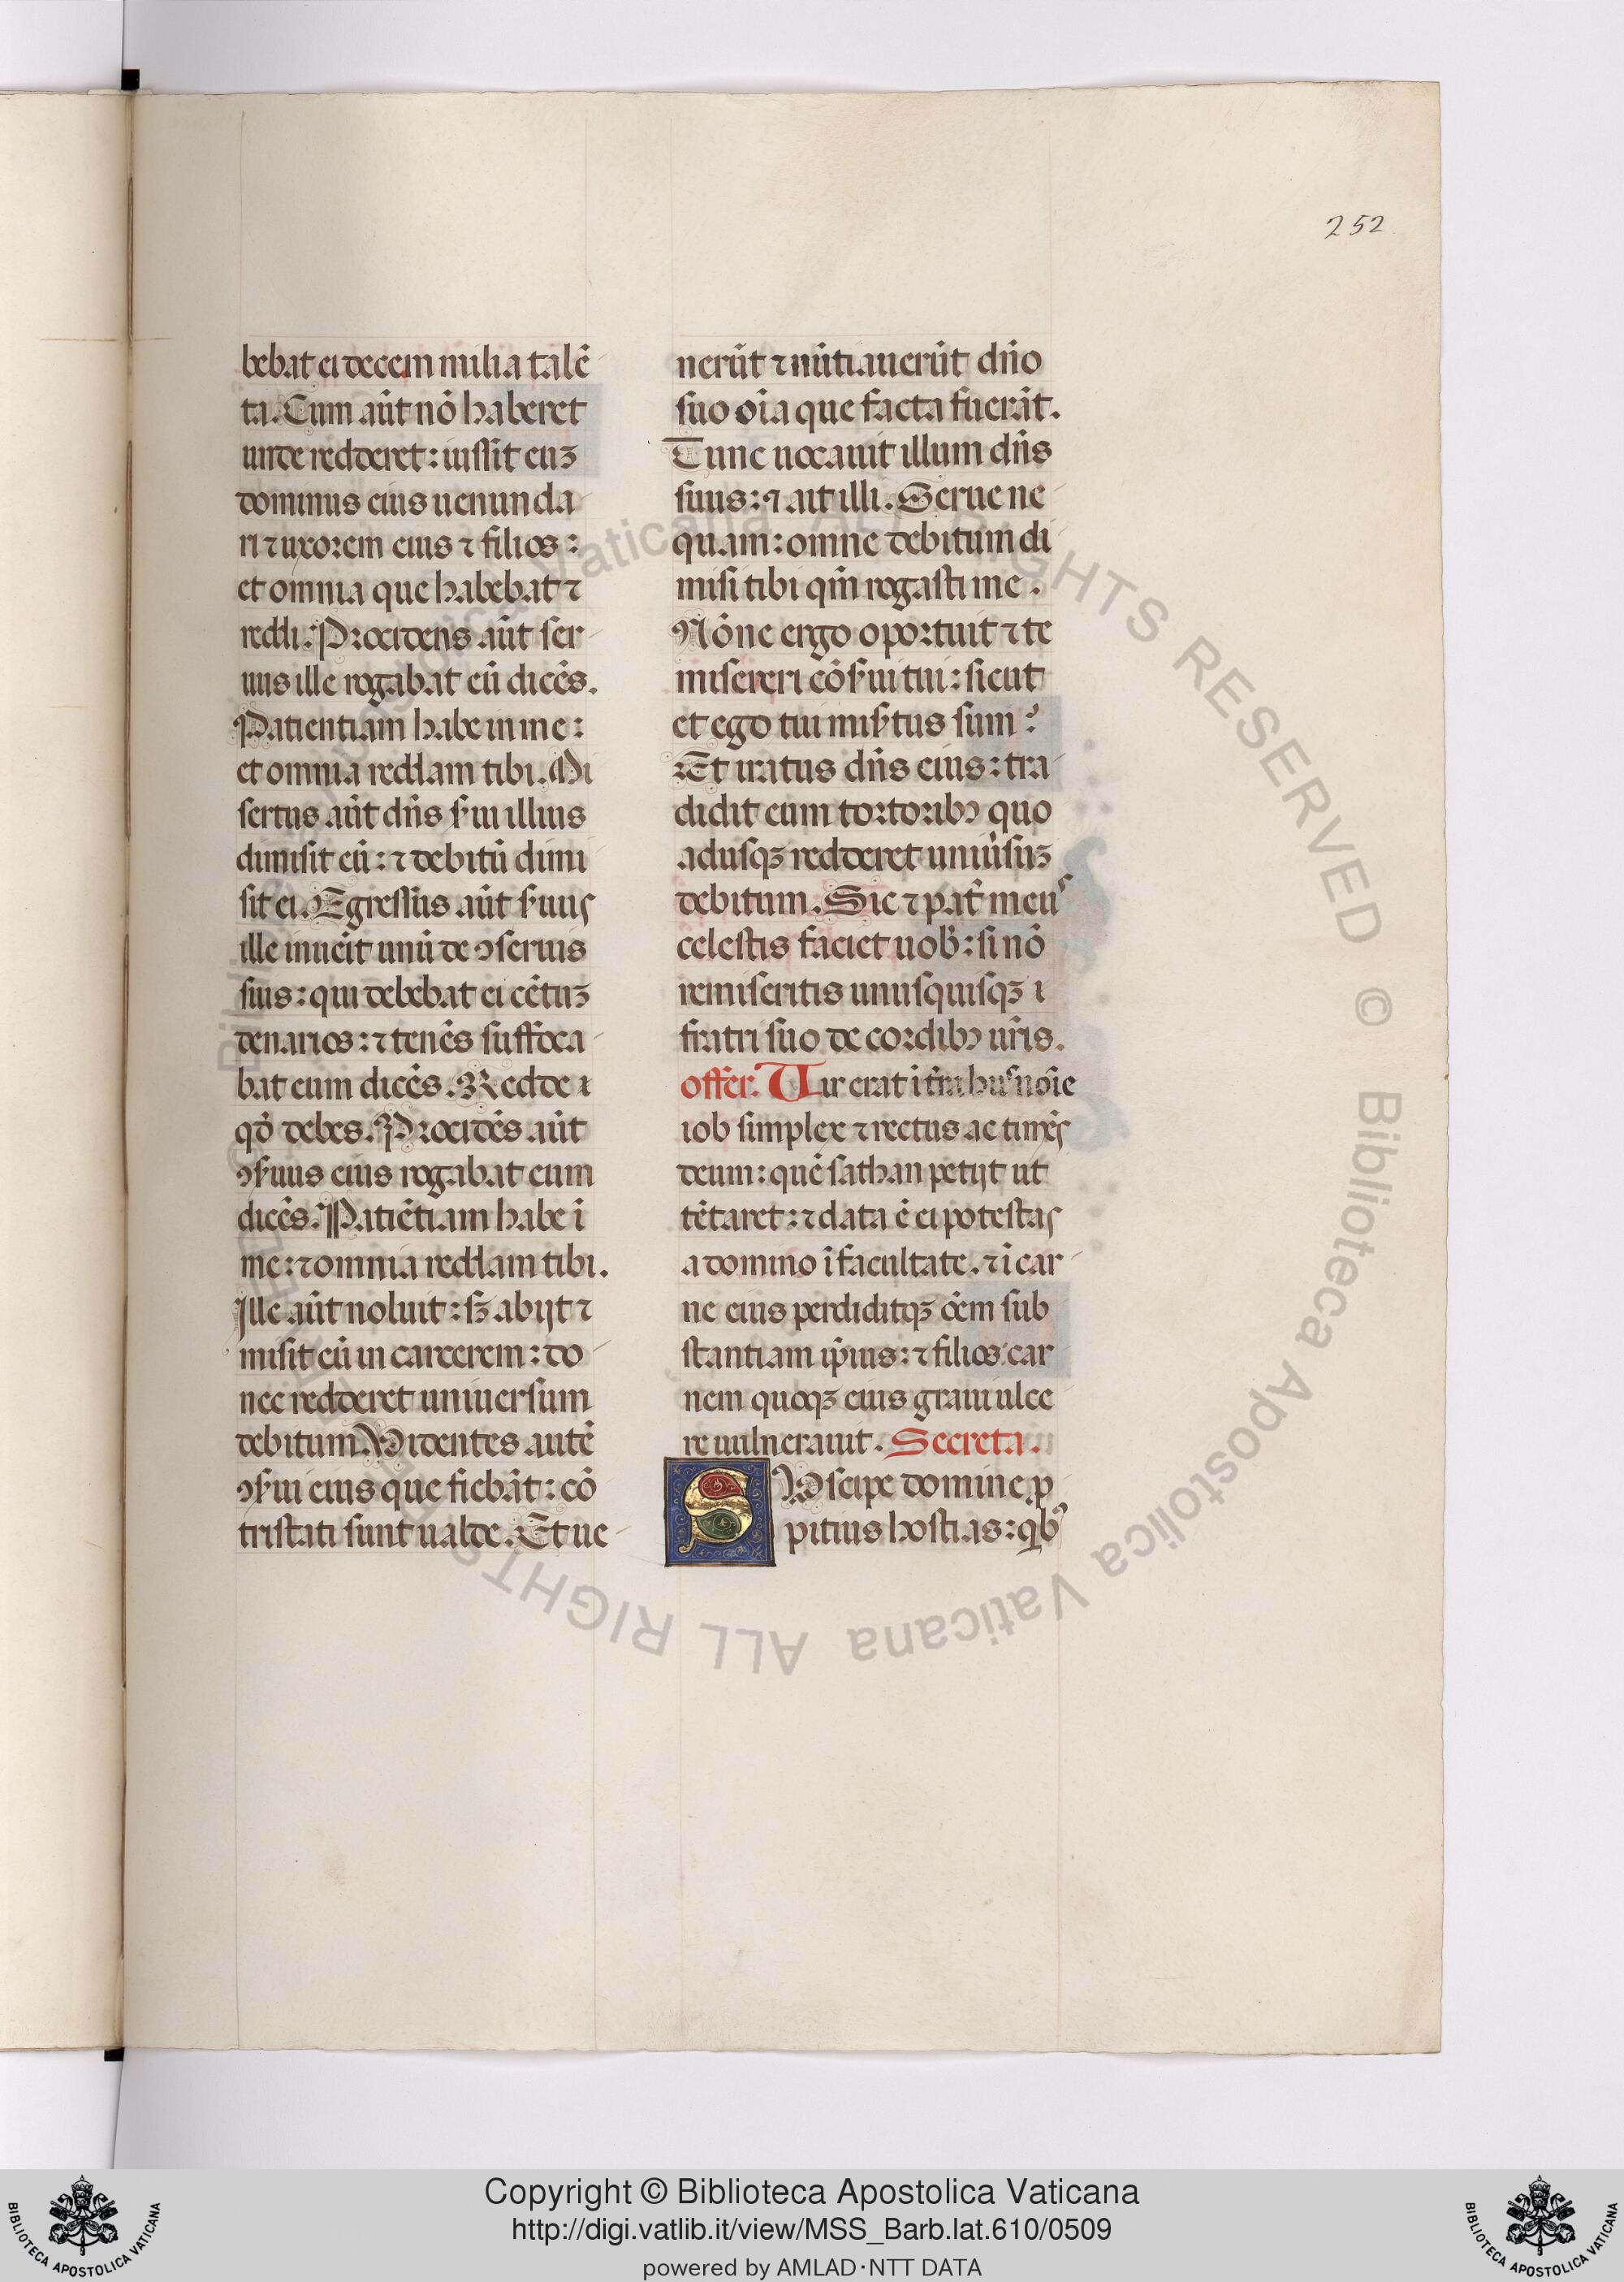 252
bebat ei decem milia talē
ta. Cum aūt nō haberet
unde redderet: iussit euꝫ
dominus eius uenunda
ri ⁊ uxorem eius ⁊ filios:
et omnia que habebat ⁊
reddi. Procidens aūt ser
uus ille rogabat eū dicēs.
Patientiam habe in me:
et omnia reddam tibi. Mi
sertus aūt dn̄s s̄ui illius
dimisit eū: ⁊ debitū dimi
sit ei. Egressus aūt s̄uus
ille inueīt unū de ꝯseruis
suis: qui debebat ei cētuꝫ
denarios: ⁊ tenēs suffoca
bat eum dicēs. Redde
qđ debes. Procidēs aūt
ꝯs̄uus eius rogabat eum
dicēs. Patiētiam habe ī
me: ⁊ omnia reddam tibi.
Ille aūt noluit: sꝫ abijt ⁊
misit eū in carcerem: do
nec redderet uniuersum
debitum. Videntes autē
ꝯs̄ui eius que fiebāt: cō
tristati sunt ualde. Et ue
nerūt ⁊ nūtiauerūt dn̄o
suo oīa que facta fuerāt.
Tunc uocauit illum dn̄s
suus: ⁊ ait illi. Serue ne
quam: omne debitum di
misi tibi qm̄ rogasti me.
Nōne ergo oportuit ⁊ te
misereri cōs̄ui tui: sicut
et ego tui mis̄tus sum?
Et iratus dn̄s eius: tra
didit eum tortoribꝫ quo
adusqꝫ redderet uniūsuꝫ
debitum. Sic ⁊ pat̄ meus
celestis faciet uob̄: si nō
remiseritis unusquisqꝫ
fratri suo de cordibꝫ ur̄is.
offer. Uir erat ī tr̄a hus noīe
iob simplex ⁊ rectus ac timēs
deum: quē sathan petijt ut
tētaret: ⁊ data ē ei potestas
a domino ī facultate. ⁊ ī car
ne eius perdiditqꝫ oēm sub
stantiam ip̄ius: ⁊ filios car
nem quoqꝫ eius graui ulce
re uulnerauit. Secreta.
SUscipe domine ꝓ
pitius hostias: qb᾽
Biblioteca Apostolica Vaticana ALL RIGHTS RESERVED ©
Copyright © Biblioteca Apostolica Vaticana
http://digi.vatlib.it/view/MSS_Barb.lat.610/0509
powered by AMLAD·NTT DATA
BIBLIOTECA APOSTOLICA VATICANA
BIBLIOTECA APOSTOLICA VATICANA